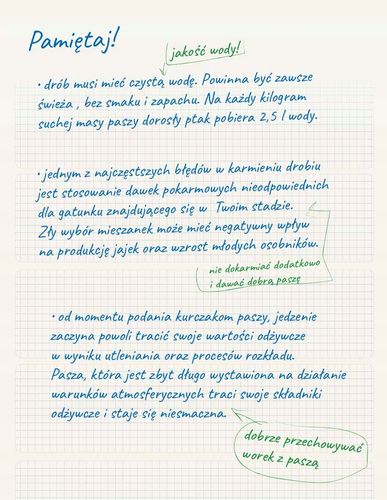 Pamiętaj!
jakość wody!
• drób musi mieć czystą wodę. Powinna być zawsze
świeża , bez smaku i zapachu. Na każdy kilogram
suchej masy paszy dorosły ptak pobiera 2,5 l wody.
• jednym z najczęstszych błędów w karmieniu drobiu
jest stosowanie dawek pokarmowych nieodpowiednich
dla gatunku znajdującego się w Twoim stadzie.
Zły wybór mieszanek może mieć negatywny wpływ
na produkcję jajek oraz wzrost młodych osobników.
nie dokarmiać dodatkowo
i dawać dobrą paszę
• od momentu podania kurczakom paszy, jedzenie
zaczyna powoli tracić swoje wartości odżywcze
w wyniku utleniania oraz procesów rozkładu.
Pasza, która jest zbyt długo wystawiona na działanie
warunków atmosferycznych traci swoje składniki
odżywcze i staje się niesmaczna.
dobrze przechowywać
worek z paszą